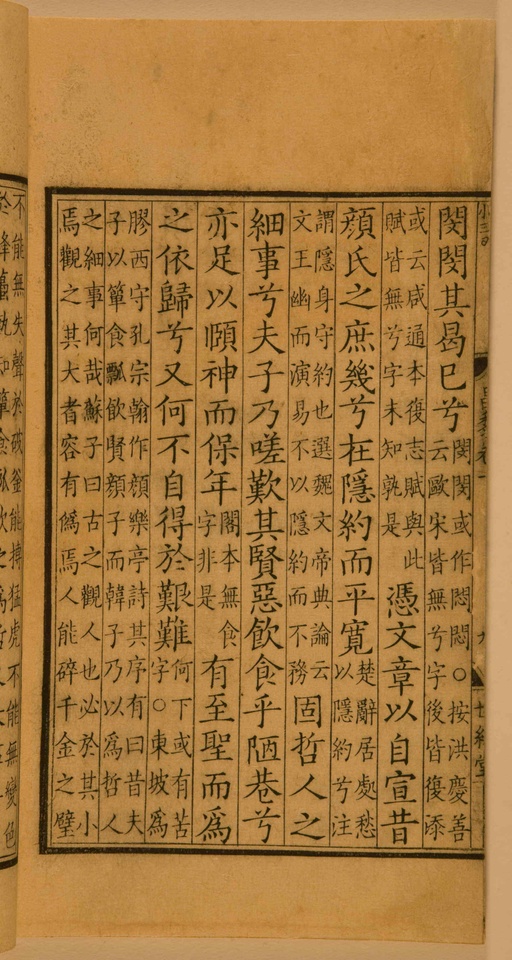 閔閔其曷巳兮閔閔或作悶悶○按洪慶善
云歐宋皆無兮字後皆復添
或云咸通本復志賦與此
賦皆無兮字未知孰是
憑文章以自宣昔
顔氏之庶幾兮在隱約而平寬楚辭居處愁
以隱約兮注
謂隱身守約也選魏文帝典論云
文王幽而演易不以隱約而不務
固哲人之
細事兮夫子乃嗟歎其賢惡飲食乎陋巷兮
亦足以頤神而保年閣本無食
字非是
有至聖而爲
之依歸兮又何不自得於艱難何下或有苦
字○東坡爲
膠西守孔宗翰作顔樂亭詩其序有曰昔夫
子以簞食瓢飲賢顔子而韓子乃以爲哲人
之細事何哉蘇子曰古之觀人也必於其小
焉觀之其大者容有僞焉人能碎千金之璧
不能無失聲於破釜能搏猛虎不能無變色